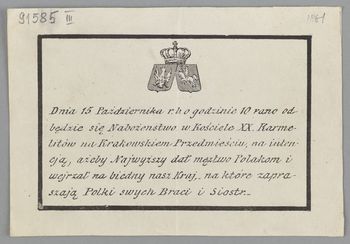 91585 III
1861
Dnia 15 Października r.b o godzinie 10 rano od-
będzie się Nabożenstwo w Kościele XX. Karme-
litów na Krakowskiem Przedmieściu, na inten-
cją, ażeby Najwyższy dał męztwo Polakom i
wejrzał na biedny nasz Kraj, na które zapra-
szają Polki swych Braci i Siostr._